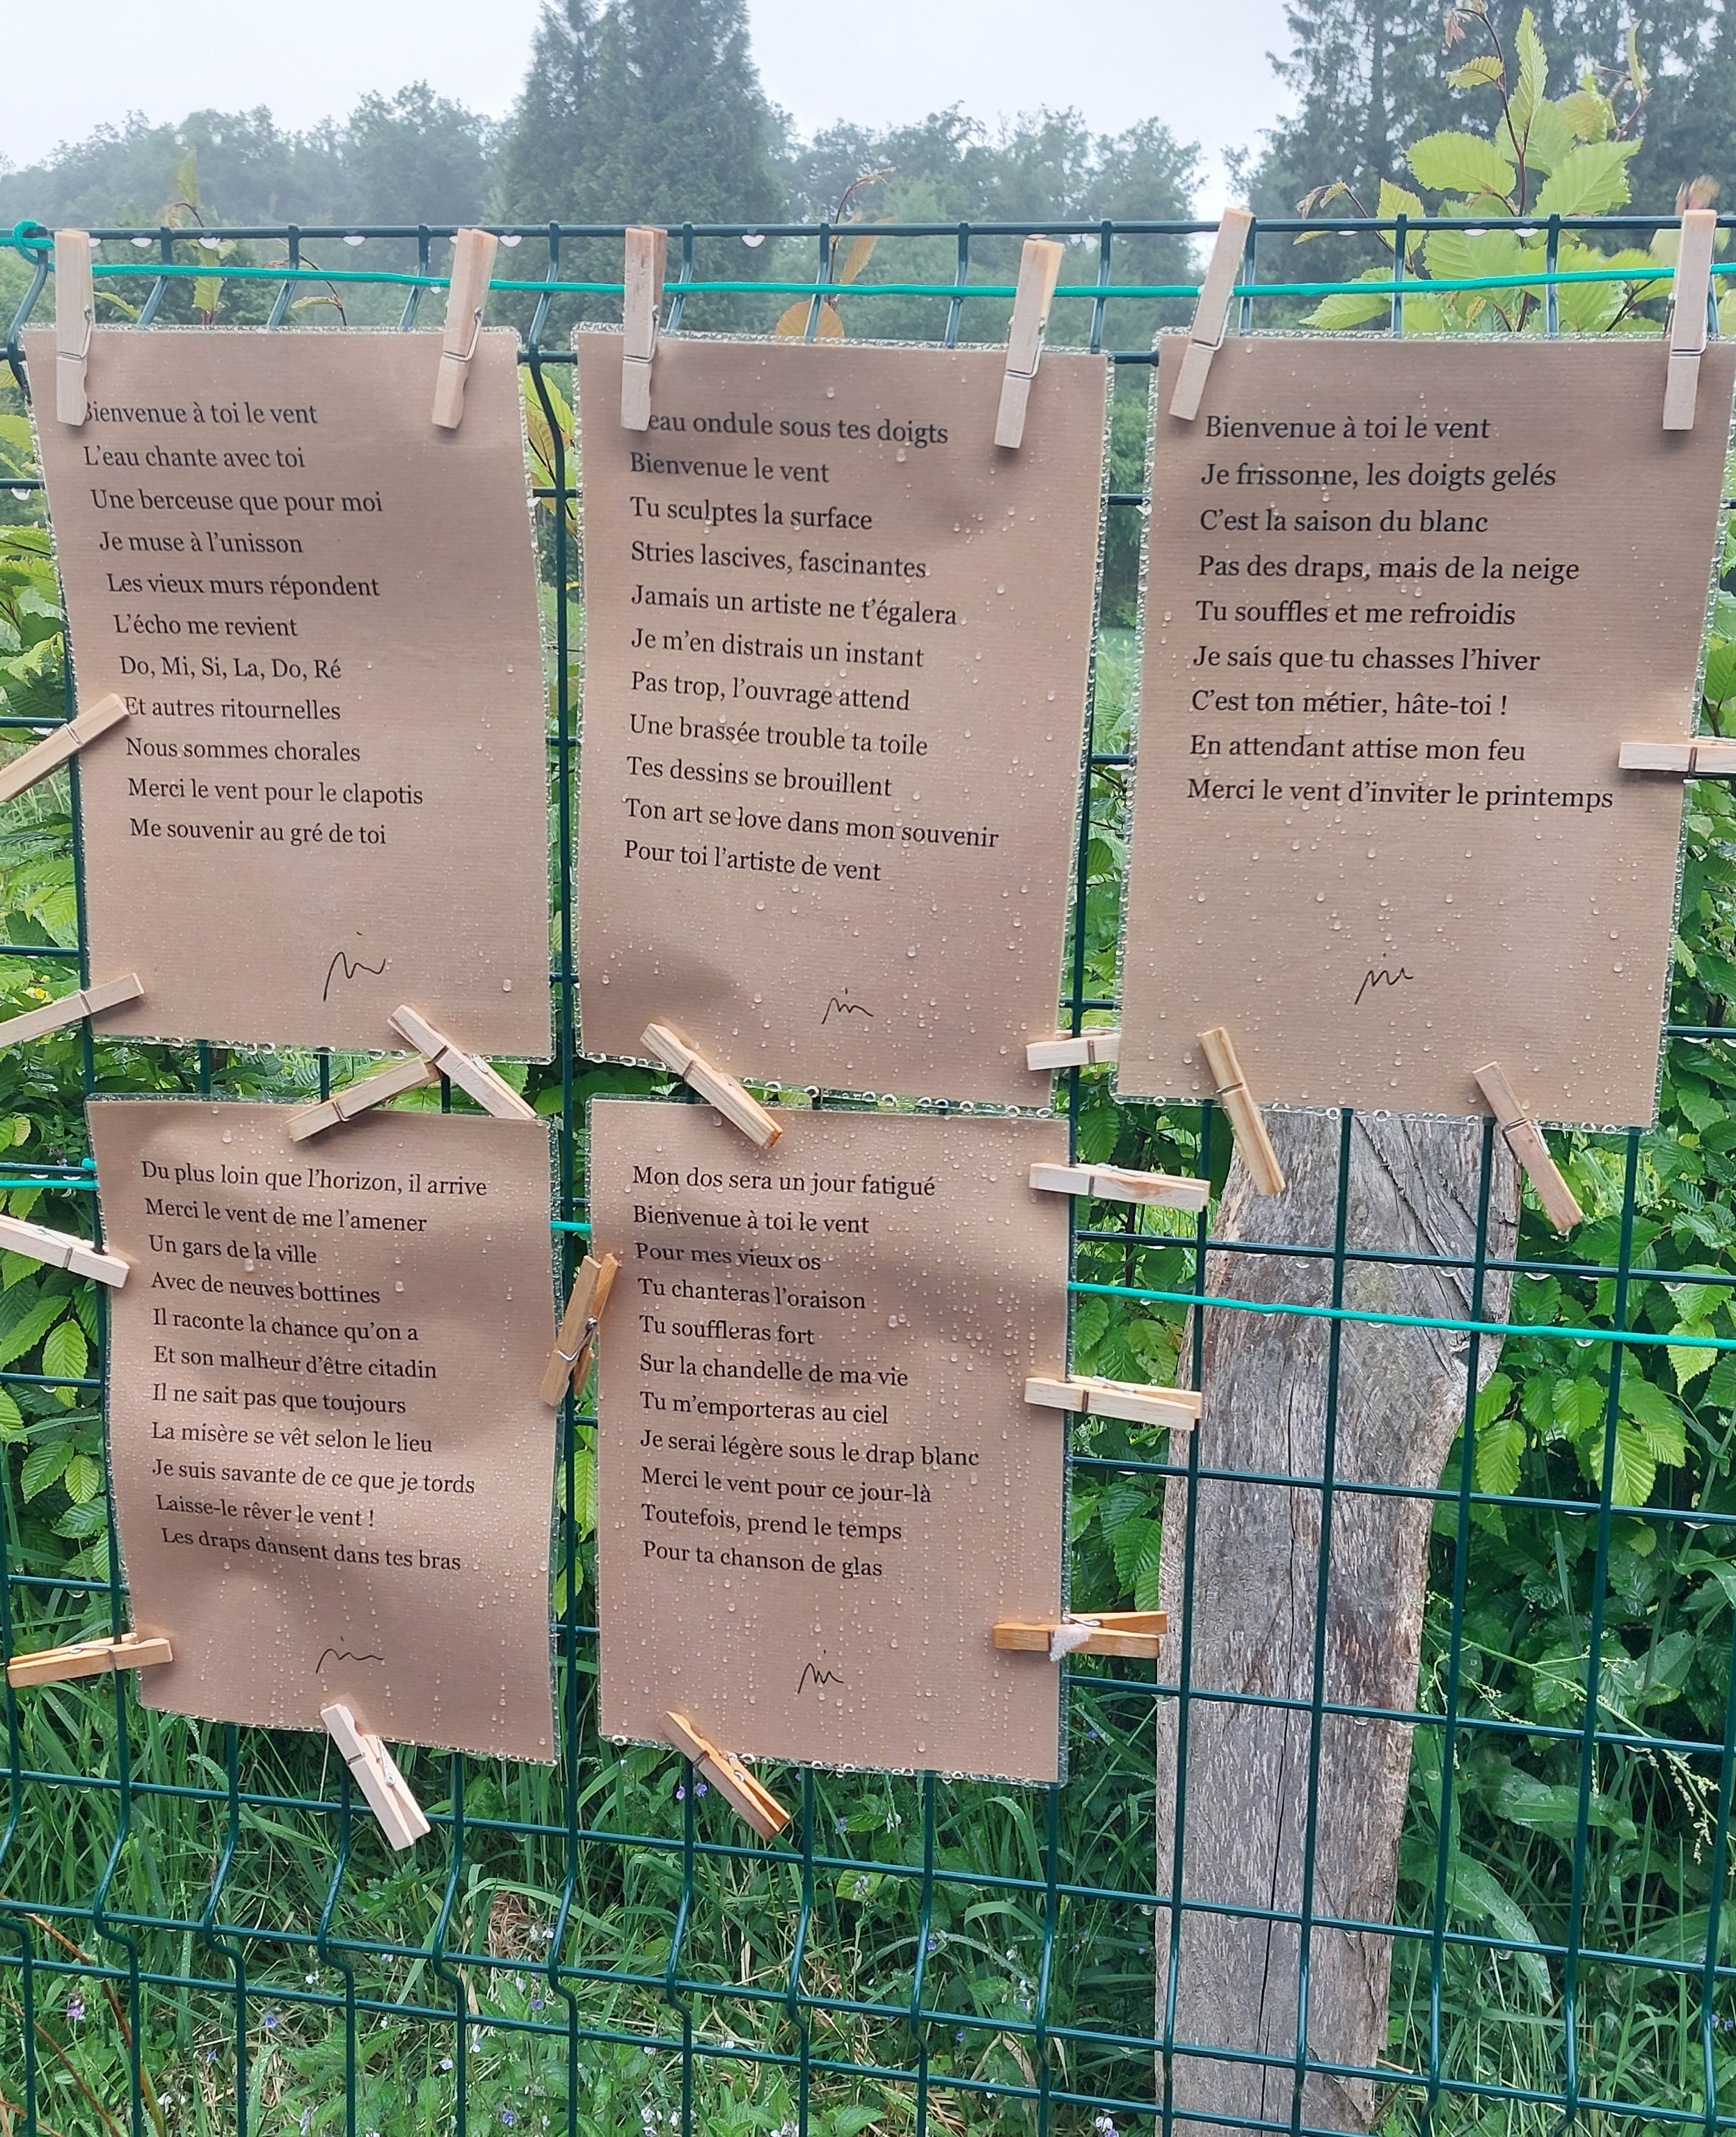 Bienvenue à toi le vent
L'eau chante avec toi
Une berceuse que pour moi
Je muse à l'unisson
Les vieux murs répondent
L'écho me revient
Do, Mi, Si, La, Do, Ré
Et autres ritournelles
Nous sommes chorales
Merci le vent pour le clapotis
Me souvenir au gré de toi
eau ondule sous tes doigts
Bienvenue le vent
Tu sculptes la surface
Stries lascives, fascinantes
Jamais un artiste ne t'égalera
Je m'en distrais un instant
Pas trop, l'ouvrage attend
Une brassée trouble ta toile
Tes dessins se brouillent
Ton art se love dans mon souvenir
Pour toi l'artiste de vent
Bienvenue à toi le vent
Je frissonne, les doigts gelés
C'est la saison du blanc
Pas des draps, mais de la neige
Tu souffles et me refroidis
Je sais que tu chasses l'hiver
C'est ton métier, hâte-toi !
En attendant attise mon feu
Merci le vent d'inviter le printemps
Du plus loin que l'horizon, il arrive
Merci le vent de me l'amener
Un gars de la ville
Avec de neuves bottines
Il raconte la chance qu'on a
Et son malheur d'être citadin
Il ne sait pas que toujours
La misère se vêt selon le lieu
Je suis savante de ce que je tords
Laisse-le rêver le vent !
Les draps dansent dans tes bras
Mon dos sera un jour fatigué
Bienvenue à toi le vent
Pour mes vieux os
Tu chanteras l'oraison
Tu souffleras fort
Sur la chandelle de ma vie
Tu m'emporteras au ciel
Je serai légère sous le drap blanc
Merci le vent pour ce jour-là
Toutefois, prend le temps
Pour ta chanson de glas